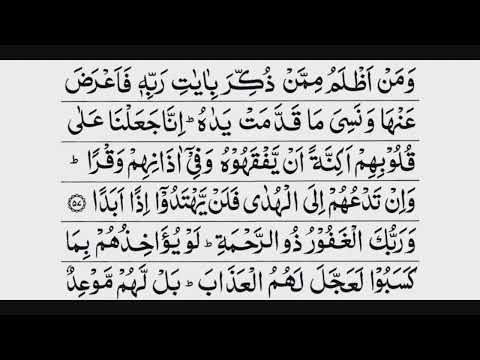 وَمَنۡ اَظۡلَمُ مِمَّنۡ ذُكِّرَ بِاٰيٰتِ رَبِّهٖ فَاَعۡرَضَ
عَنۡهَا وَنَسِىَ مَا قَدَّمَتۡ يَدٰهُ ؕ اِنَّا جَعَلۡنَا عَلٰى
قُلُوۡبِهِمۡ اَكِنَّةً اَنۡ يَّفۡقَهُوۡهُ وَفِىۡۤ اٰذَانِهِمۡ وَقۡرًا ؕ
وَاِنۡ تَدۡعُهُمۡ اِلَى الۡهُدٰى فَلَنۡ يَّهۡتَدُوۡۤا اِذًا اَبَدًا ﴿۵۷﴾
وَرَبُّكَ الۡغَفُوۡرُ ذُو الرَّحۡمَةِ ؕ لَوۡ يُؤَاخِذُهُمۡ بِمَا
كَسَبُوۡا لَعَجَّلَ لَهُمُ الۡعَذَابَ ؕ بَلۡ لَّهُمۡ مَّوۡعِدٌ